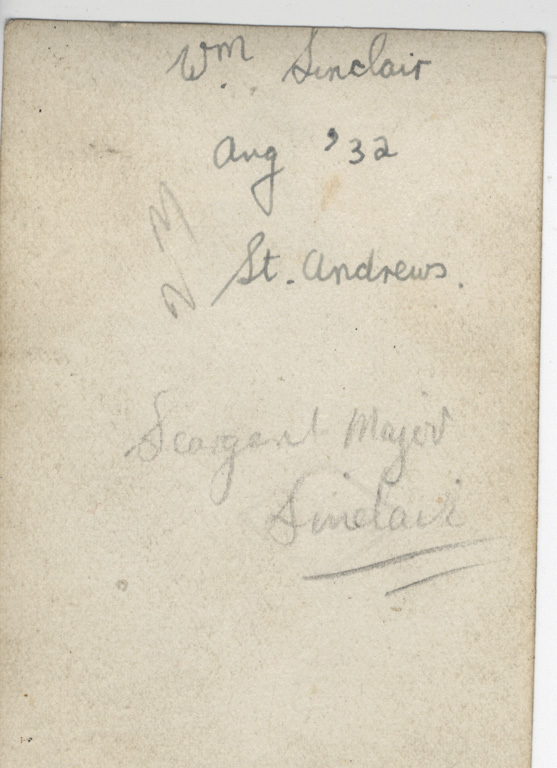 Wm Sinclair
Aug '32
St. Andrews.
23
Seargent Major
Sinclair